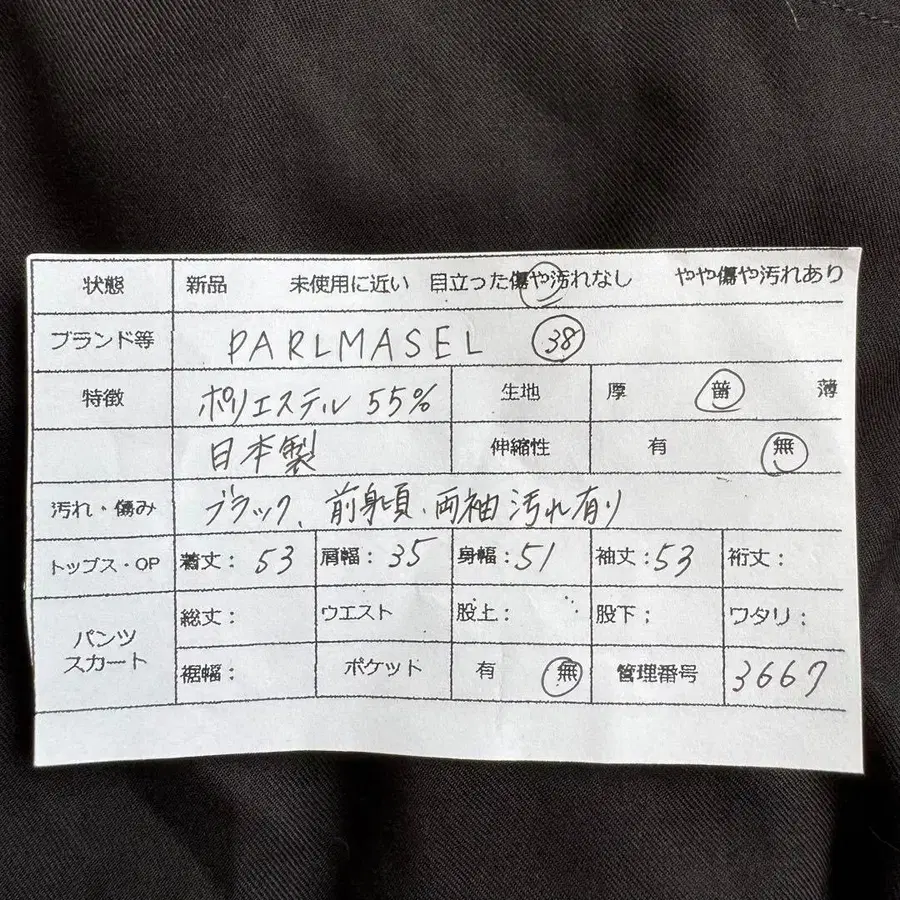 状態 新品 未使用に近い 目立った傷や汚れなし やや傷や汚れあり
ブランド等 PARLMASEL 38
特徴 ポリエステル 55% 生地 厚 普 薄
日本製 伸縮性 有 無
汚れ・傷み ブラック、前身頃、両袖 汚れ有り
トップス・OP 着丈: 53 肩幅: 35 身幅: 51 袖丈: 53 裄丈:
パンツ スカート 総丈: ウエスト 股上: 股下; ワタリ:
裾幅: ポケット 有 無 管理番号 3667